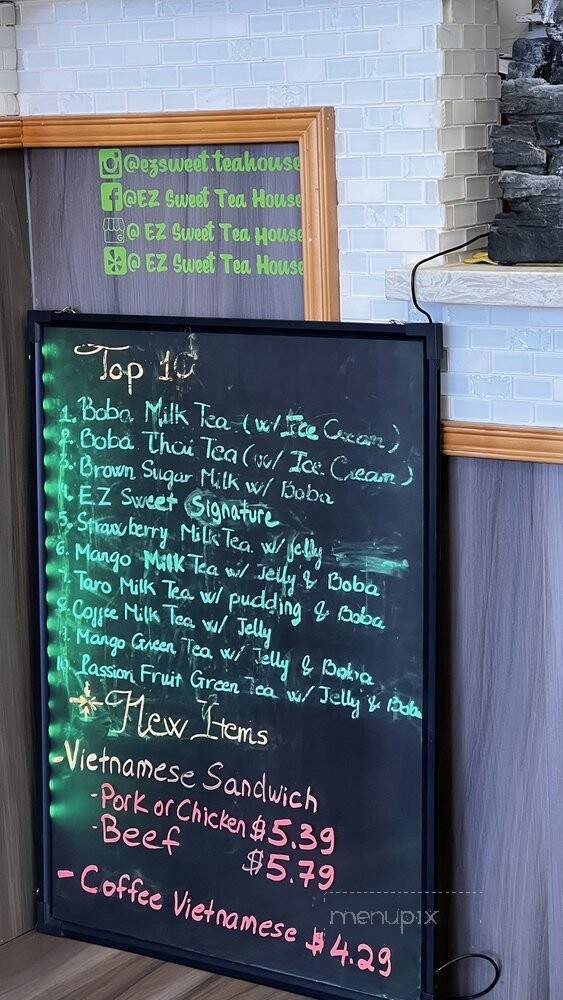 @ezsweet.teahouse
@EZ Sweet Tea House
@ EZ Sweet Tea House
@ EZ Sweet Tea House
Top 10
1. Boba Milk Tea (w/ Ice Cream)
2. Boba Thai Tea (w/ Ice Cream)
3. Brown Sugar Milk w/ Boba
4. E.Z Sweet Signature
5. Strawberry Milk Tea w/ Jelly
6. Mango Milk Tea w/ Jelly & Boba
7. Taro Milk Tea w/ pudding & Boba
8. Coffee Milk Tea w/ Jelly
9. Mango Green Tea w/ Jelly & Boba
10. Passion Fruit Green Tea w/ Jelly & Boba
New Items
- Vietnamese Sandwich
- Pork or Chicken $5.39
- Beef $5.79
- Coffee Vietnamese $4.29
menupix